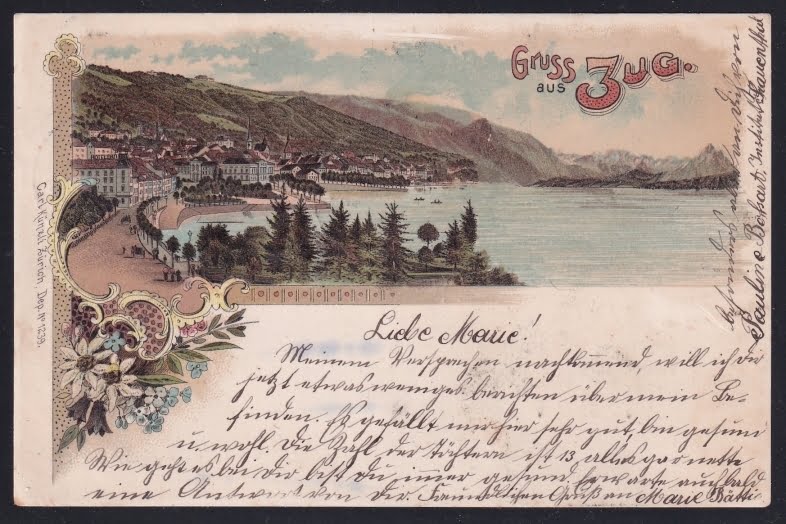 Gruss
aus Zug.
Carl Künzli, Zürich, Dep. No 1239.
Liebe Marie!
Meinem Versprechen nachkommend, will ich dir
jetzt etwas weniges berichten über mein Be-
finden. Es gefällt mir hier sehr gut, bin gesund
u. wohl. Die Zahl der Töchtern ist 13, alles gar nette
Wie geht es bei Dir bist du immer gesund. Erwarte auch bald
eine Antwort von Dir. Freundlichen Gruß an Marie Bätti
besonders von
Pauline Boßart, Institut